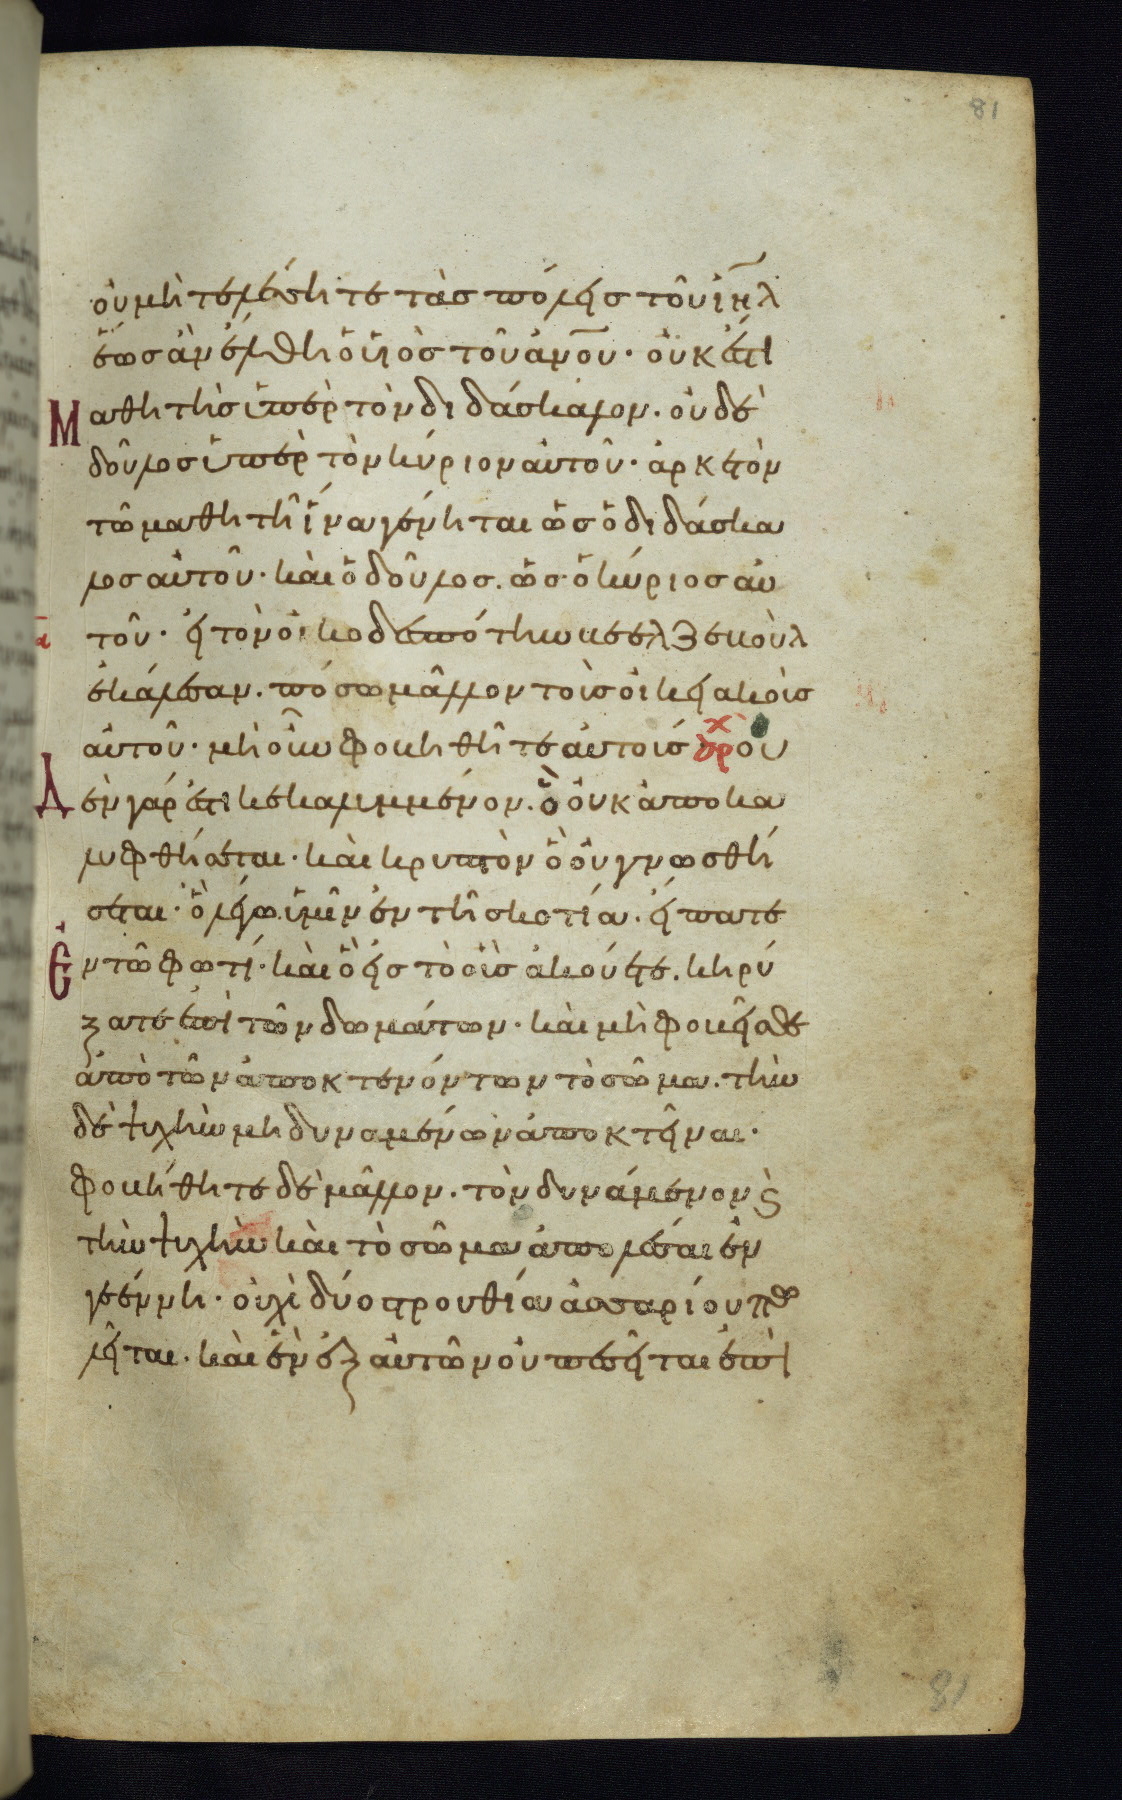 81
οὐ μὴ τελέσητε τὰς πόλεις τοῦ ἰη̅λ
ἕως ἂν ἔλθη ὁ υἱὸς τοῦ ἀν̅ου· οὐκ ἔστι
Μαθητὴς ὑπὲρ τὸν διδάσκαλον. οὐδὲ
δοῦλος ὑπὲρ τὸν κύριον αὐτοῦ· ἀρκετὸν
τῶ μαθητῆ ἵνα γένηται ὡς ὁ διδάσκα
λος αὐτοῦ· καὶ ὁ δοῦλος. ὡς ὁ κύριος αὐ
τοῦ· εἰ τὸν οἰκοδεσπότην βεελζεβοὺλ
ἐκάλεσαν. πόσω μᾶλλον τοῖς οἰκειακοῖς
αὐτοῦ· μὴ οὖν φοβηθῆτε αὐτοίς ου
Δὲν γάρ ἐστι κεκαλυμμένον. ὃ οὐκ ἀποκα
λυφθήσεται· καὶ κρυπτὸν ὃ οὐ γνωσθή
σεται· ὃ λέγω ὑμῖν ἐν τῆ σκοτία. εἴπατε
Ἐν τῶ φωτί· καὶ ὃ εἰς τὸ οὖς ἀκούετε. κηρύ
ξατε ἐπὶ τῶν δωμάτων· καὶ μὴ φοβεῖσθε
ἀπὸ τῶν ἀποκτενόντων τὸ σῶμα. τὴν
δὲ ψυχὴν μὴ δυναμένων ἀποκτεῖναι·
φοβήθητε δὲ μᾶλλον. τὸν δυνάμενον ϗ
τὴν ψυχὴν καὶ τὸ σῶμα ἀπολέσαι ἐν
γεέννη· οὐχὶ δύο στρουθία ἀσσαρίου πω
λεῖται. καὶ ἓν ἐξ αὐτῶν οὐ πεσεῖται ἐπὶ
81